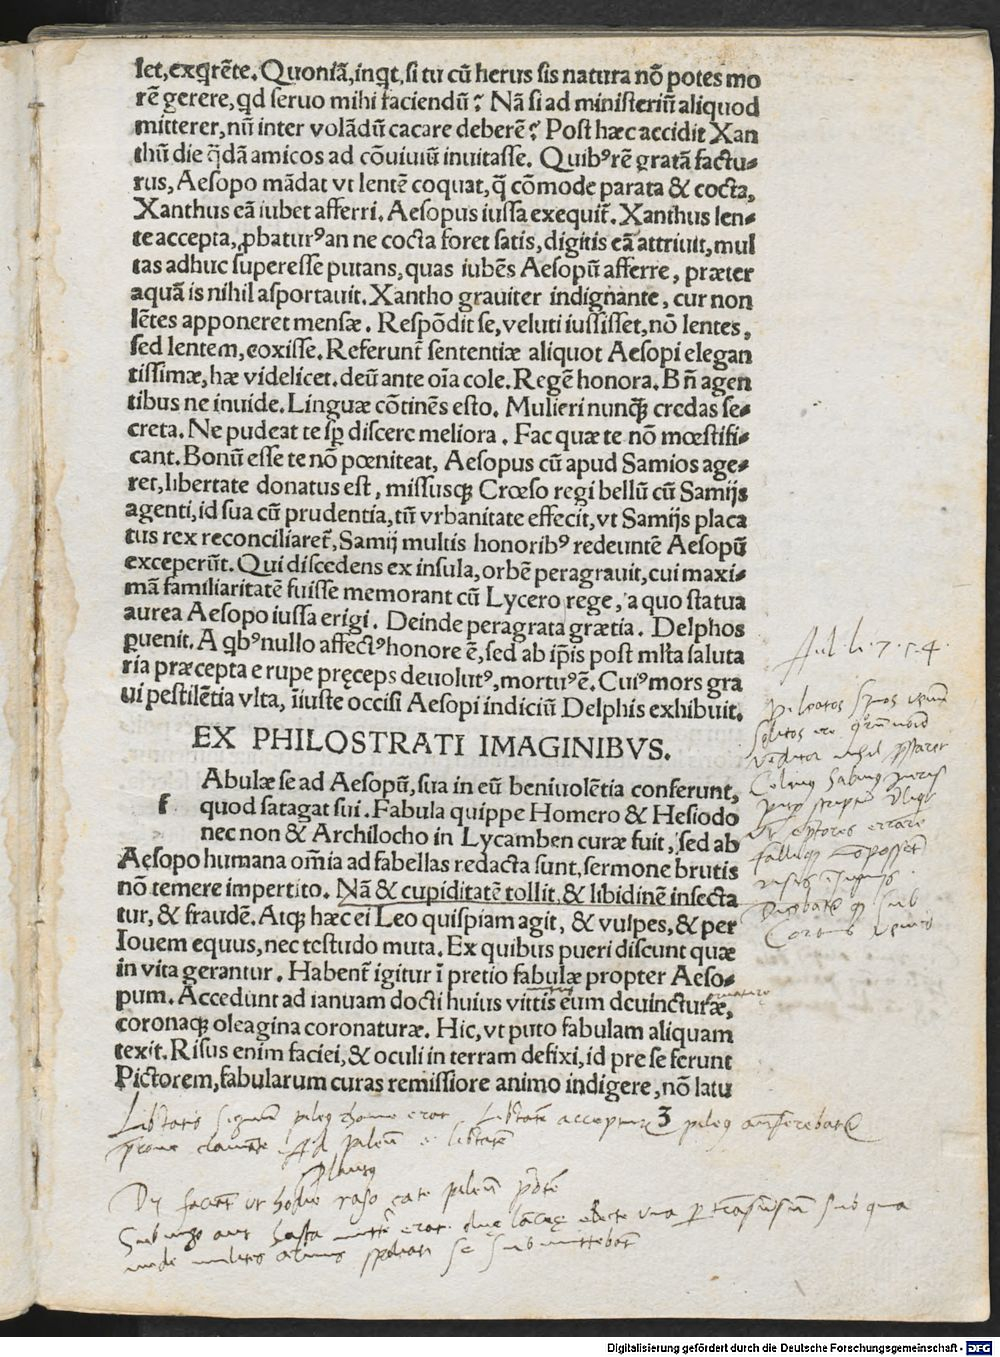 let,exq̃rẽte. Quoniã, inqt, si tu cũ herus sis natura nõ potes mo
rẽ gerere, qd seruo mihi faciendũ? Nã si ad ministeriũ aliquod
mitterer, nũ inter volãdũ cacare deberẽ? Post hæc accidit Xan
thũ die q̃dã amicos ad cõuiuiũ inuitasse. Quibꝰ rẽ gratã factu-
rus, Aesopo mãdat vt lentẽ coquat, q̃ cõmode parata & cocta,
Xanthus eã iubet afferri. Aesopus iussa exequit᷑. Xanthus len-
te accepta, ꝓbaturꝰ an ne cocta foret satis, digitis eã attriuit, mul
tas adhuc superesse putans, quas iubẽs Aesopũ afferre, præter
aquã is nihil asportauit. Xantho grauiter indignante, cur non
lẽtes apponeret mensæ. Respõdit se, veluti iussisset, nõ lentes,
sed lentem, coxisse. Referunt᷑ sententiæ aliquot Aesopi elegan
tissimæ, hæ videlicet. deũ ante oĩa cole. Regẽ honora. Bñ agen
tibus ne inuide. Linguæ cõtinẽs esto. Mulieri nunqꝫ credas se-
creta. Ne pudeat te sꝑ discere meliora. Fac quæ te nõ mœstifi-
cant. Bonũ esse te nõ pœniteat, Aesopus cũ apud Samios age-
ret, libertate donatus est, missusqꝫ Crœso regi bellũ cũ Samijs
agenti, id sua cũ prudentia, tũ vrbanitate effecit, vt Samijs placa
tus rex reconciliaret᷑, Samij multis honoribꝰ redeuntẽ Aesopũ
exceperũt. Qui discedens ex insula, orbẽ peragrauit, cui maxi-
mã familiaritatẽ fuisse memorant cũ Lycero rege, a quo statua
aurea Aesopo iussa erigi. Deinde peragrata grætia. Delphos
puenit. A qbꝰ nullo affectꝰ honore ẽ, sed ab ip̃is post ml̃ta saluta
ria præcepta e rupe pręceps deuolutꝰ, mortuꝰ ẽ. Cuiꝰ mors gra
ui pestilẽtia vlta, ĩiuste occisi Aesopi indiciũ Delphis exhibuit.
Aul. li. 7. c. 4.
EX PHILOSTRATI IMAGINIBVS.
f Abulæ se ad Aesopũ, sua in eũ beniuolẽtia conferunt,
quod satagat sui. Fabula quippe Homero & Hesiodo
nec non & Archilocho in Lycamben curæ fuit, sed ab
Aesopo humana om̃ia ad fabellas redacta sunt, sermone brutis
nõ temere impertito. Nã & cupiditatẽ tollit, & libidinẽ insecta
tur, & fraudẽ. Atqꝫ hæc ei Leo quispiam agit, & vulpes, & per
Iouem equus, nec testudo muta. Ex quibus pueri discunt quæ
in vita gerantur. Habent᷑ igitur ĩ pretio fabulæ propter Aeso-
pum. Accedunt ad ianuam docti huius vittis eum deuincturæ,
coronaqꝫ oleagina coronaturæ. Hic, vt puto fabulam aliquam
texit. Risus enim faciei, & oculi in terram defixi, id pre se ferunt
Pictorem, fabularum curas remissiore animo indigere, nõ latu
3
Plautus
Digitalisierung gefördert durch die Deutsche Forschungsgemeinschaft - DFG